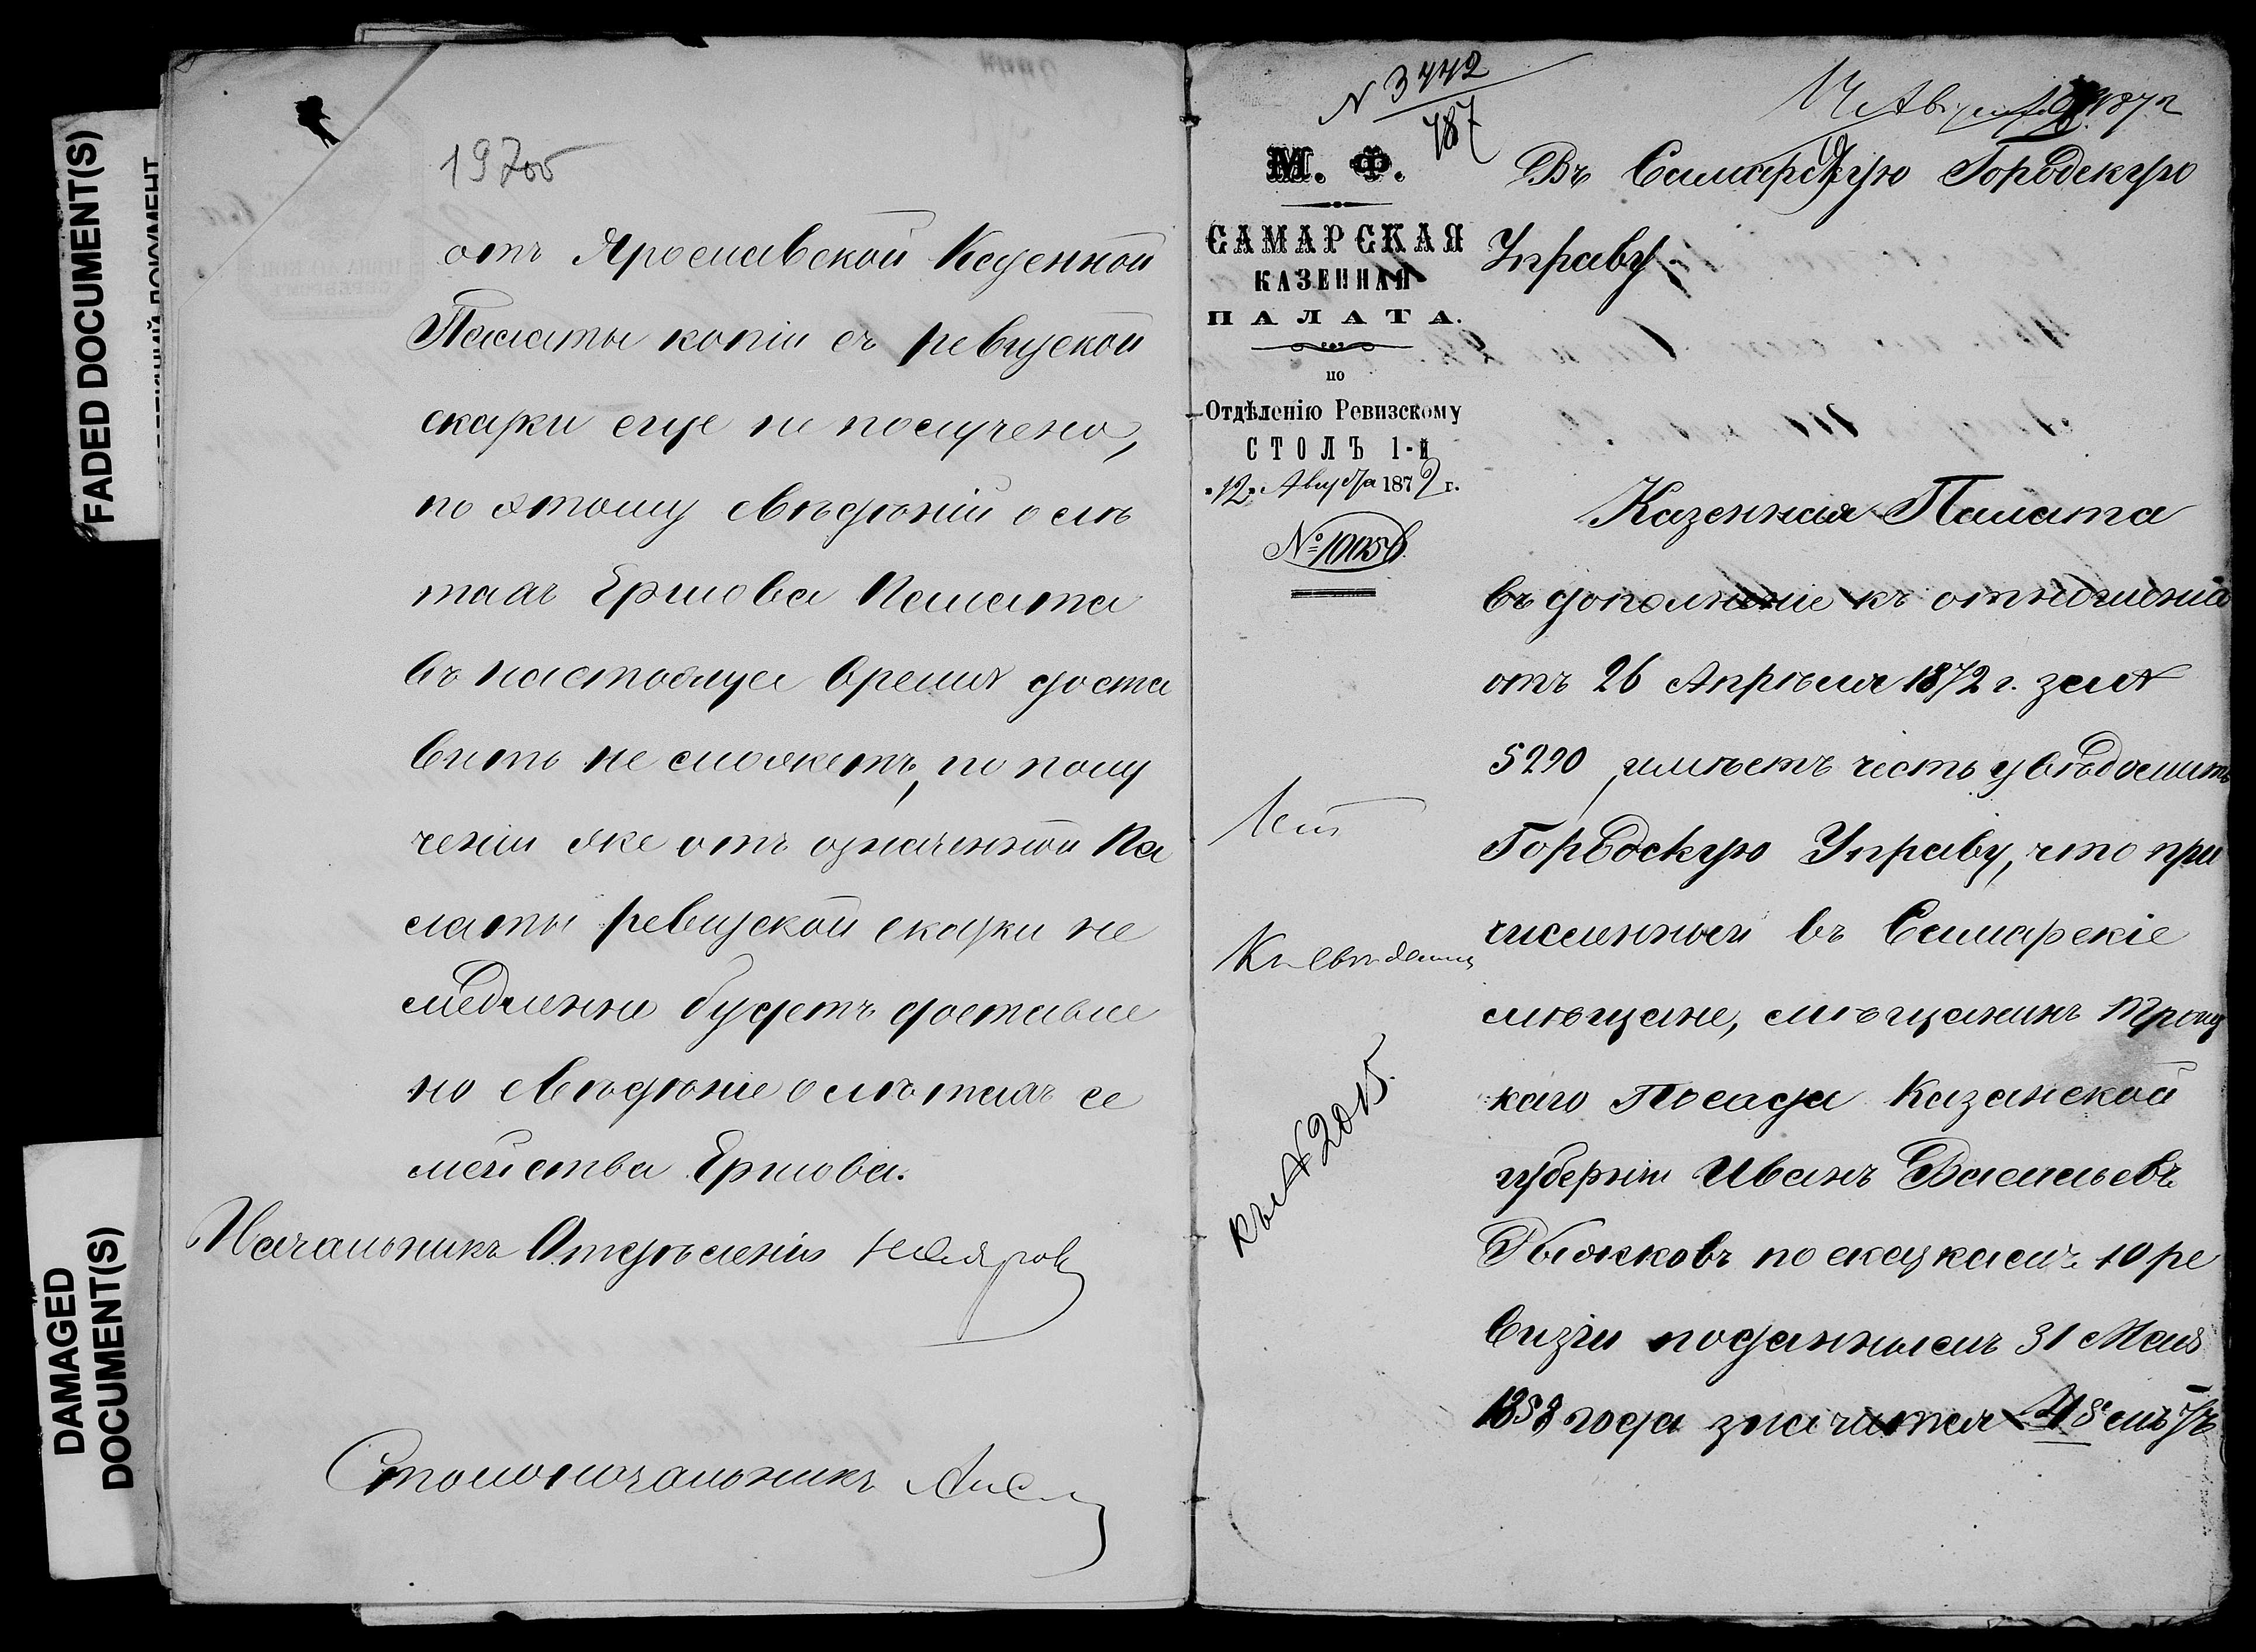 FADED DOCUMENT(S)
DAMAGED
DOCUMENT(S)
отъ Ярославской Казенной
Палаты копіи съ ревизской
сказки еще не получено,
по этому свѣдѣній о лѣ
тахъ Ершова Палата
въ настоящее время доста
вить не можетъ, по полу
ченіи же отъ означенной Па
латы ревизской сказки не
медленно будетъ доставле
но свѣдѣніе о лѣтахъ се
мейства Ершова.
Начальникъ Отдѣленія
Столоначальникъ
N 3442
787
М. Ф.
САМАРСКАЯ
КАЗЕННАЯ
ПАЛАТА.
по
Отдѣленію Ревизскому
СТОЛЪ 1-й
„12„ Августа 1872 г.
№ 10058
Къ свѣдѣнію
къ N 2015.
14 Августа 1872
Въ Самарскую Городскую
Управу
Казенная Палата
въ дополненіе къ отношенію
отъ 26 Апрѣля 1872 г. за N
5290, имѣетъ честь увѣдомить
Городскую Управу, что при
численный въ Самарскіе
мѣщане, мѣщанинъ Троиц
каго Посада Казанской
губерніи Иванъ Васильевъ
Рыжковъ по сказкамъ 10 ре
визіи поданнымъ 31 Мая
1858 года значится 48 лѣтъ